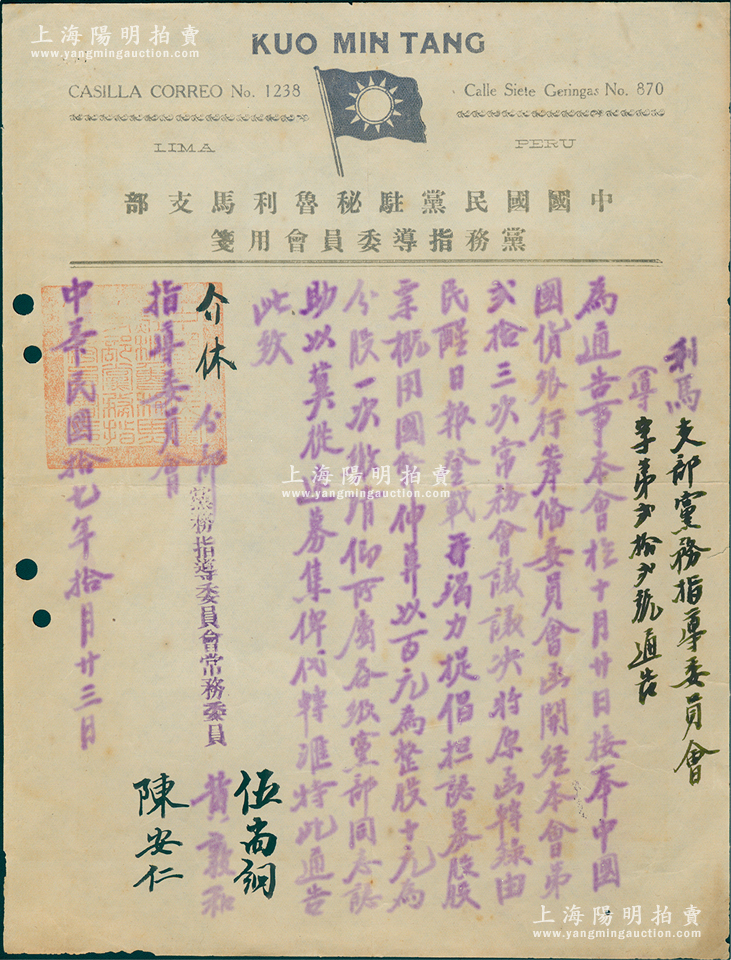 上海陽明拍賣
www.yangmingauction.com
KUO MIN TANG
CASILLA CORREO No. 1238
Calle Siete Geringas No. 870
LIMA
PERU
部支馬利魯秘駐黨民國國中
箋用會員委導指務黨
利馬支部黨務指導委員會
(導)字第弍拾弍號通告
為通告事本會於十月廿日接奉中國
國貨銀行籌備委員會函開經本會第
弍拾三次常務會議議决將原函轉錄由
民醒日報登載并竭力提倡担認募股股
票概用國幣伸算以百元為整股十元為
分股一次繳清仰所屬各級黨部同志認
助以冀從速募集俾代轉滙特此通告
此致
介休分部
指導委員會
黨務指導委員會常務委員
伍尚絅
黃敦和
陳安仁
中華民國拾七年拾月廿三日
上海陽明拍賣
www.yangmingauction.com
上海陽明拍賣
www.yangmingauction.com